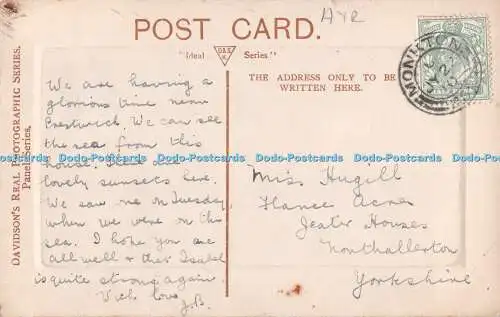 AYR
POST CARD.
"Ideal D&S K Series"
DAVIDSON'S REAL PHOTOGRAPHIC SERIES.
Panel Series.
THE ADDRESS ONLY TO BE
WRITTEN HERE.
MONKTON
We are having a
glorious time near
Prestwick. We can see
the sea from this
house. There are
lovely sunsets here.
We saw one on Tuesday
when we were on the
sea. I hope you are
all well & that Isabel
is quite strong again.
With love
J.B.
Miss Hugill
Acres
Jeater Houses
Northallerton
Yorkshire
Dodo-Postcards Dodo-Postcards Dodo-Postcards Dodo-Postcards Dodo-Postcards Dodo-Postcards